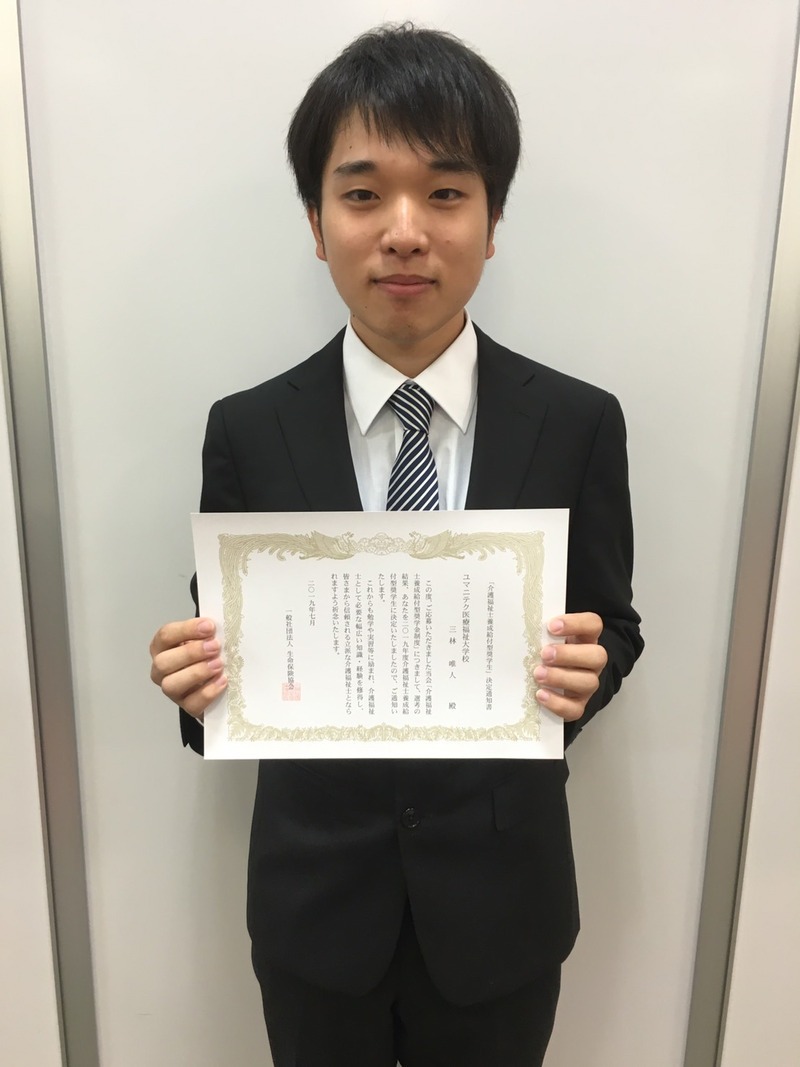 「介護福祉士養成給付型奨学生」決定通知書
ユマニテク医療福祉大学校
三林 唯人 殿
この度、ご応募いただきました当会「介護福祉
士養成給付型奨学金制度」につきまして、選考の
結果、あなたを二〇一九年度介護福祉士養成給
付型奨学生に決定いたしましたので、ご通知い
たします。
これからも勉学や実習等に励まれ、介護福祉
士として必要な幅広い知識・経験を修得し、
皆さまから信頼される立派な介護福祉士となら
れますよう祈念いたします。
二〇一九年七月
一般社団法人 生命保険協会